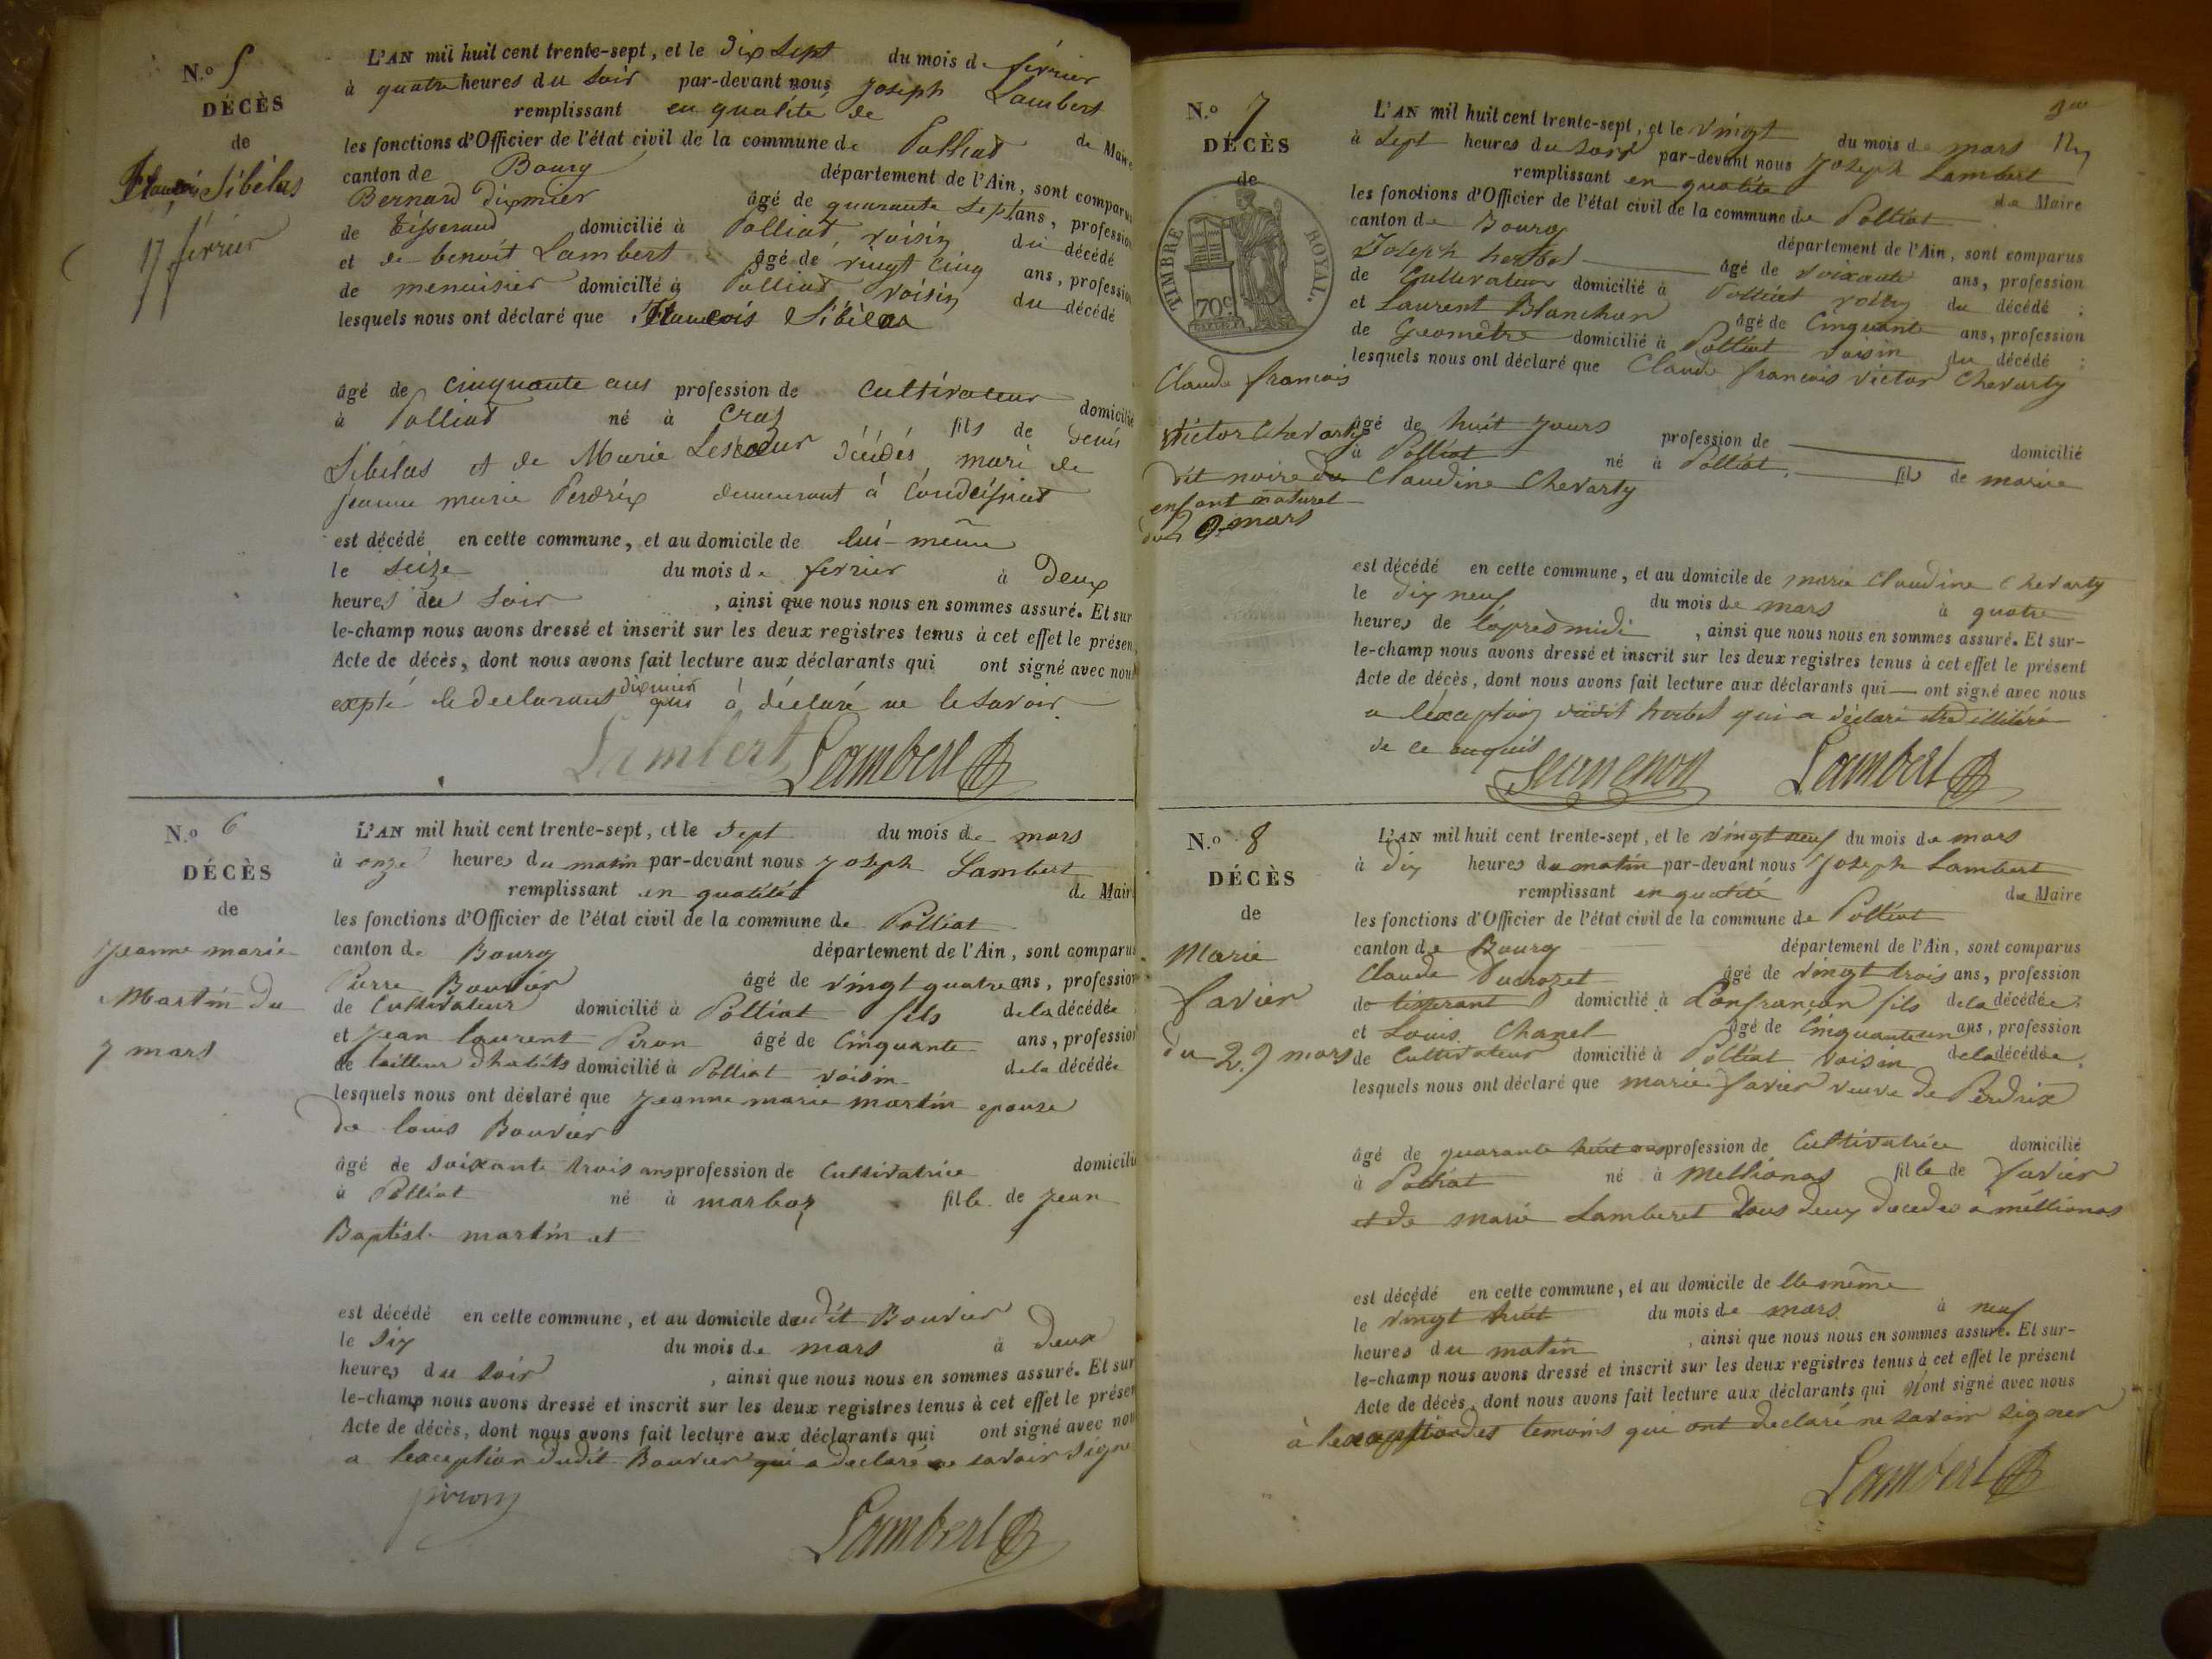 N.o 5
DÉCÈS
de
François Sibélas
17 février
L'AN mil huit cent trente-sept, et le dix sept du mois de février
à quatre heures du soir par-devant nous Joseph Lambert
remplissant en qualité de de Maire
les fonctions d'Officier de l'état civil de la commune de Polliat
canton de Bourg département de l'Ain, sont comparus
Bernard Dixmier âgé de quarante sept ans, profession
de tisserand domicilié à Polliat, voisin du décédé
et de benoit Lambert âgé de vingt cinq ans, profession
de menuisier domicilié à Polliat voisin du décédé
lesquels nous ont déclaré que François Sibélas
âgé de cinquante ans profession de cultivateur domicilié
à Polliat né à Cras fils de Denis
Sibélas et de Marie décédés, mari de
jeanne marie Perdrix demeurant à Condeissiat
est décédé en cette commune, et au domicile de lui-même
le seize du mois de février à deux
heures du soir, ainsi que nous nous en sommes assuré. Et sur
le-champ nous avons dressé et inscrit sur les deux registres tenus à cet effet le présent
Acte de décès, dont nous avons fait lecture aux déclarants qui ont signé avec nous
expté le declarant dixmier qui à déclaré ne le savoir
Lambert Lambert
N.o 6
DÉCÈS
de
Jeanne marie
Martin du
7 mars
L'AN mil huit cent trente-sept, et le sept du mois de mars
à onze heures du matin par-devant nous Joseph Lambert
remplissant en qualité de Maire
les fonctions d'Officier de l'état civil de la commune de Polliat
canton de Bourg département de l'Ain, sont comparus
Pierre Bouvier âgé de vingt quatre ans, profession
de Cultivateur domicilié à Polliat fils de la décédée
et Jean laurent Piron âgé de Cinquante ans, profession
de tailleur d'habits domicilié à Polliat voisin de la décédée
lesquels nous ont déclaré que Jeanne marie martin epouse
de louis Bouvier
âgé de soixante trois ans profession de Cultivatrice domicilié
à Polliat né à marboz fille de Jean
Baptiste martin et
est décédé en cette commune, et au domicile dudit Bouvier
le six du mois de mars à deux
heures du soir, ainsi que nous nous en sommes assuré. Et sur
le-champ nous avons dressé et inscrit sur les deux registres tenus à cet effet le présent
Acte de décès, dont nous avons fait lecture aux déclarants qui ont signé avec nous
a lexception dudit Bouvier qui a declaré ne savoir signer
piron Lambert
N.o 7
DÉCÈS
de
TIMBRE ROYAL.
70c
Claude françois
Victor Chevarty
dit noire du
enfant naturel
du 20 mars
L'AN mil huit cent trente-sept, et le vingt du mois de mars
à sept heures du soir par-devant nous Joseph Lambert
remplissant en qualité de Maire
les fonctions d'Officier de l'état civil de la commune de Polliat
canton de Bourg département de l'Ain, sont comparus
Joseph herbet âgé de soixante ans, profession
de Cultivateur domicilié à Polliat voisin du décédé :
et Laurent Blanchon âgé de Cinquante ans, profession
de Geomètre domicilié à Polliat voisin du décédé :
lesquels nous ont déclaré que Claude françois victor Chevarty
âgé de huit jours profession de domicilié
à Polliat né à Polliat fils de marie
Claudine Chevarty
est décédé en cette commune, et au domicile de marie Claudine Chevarty
le dix neuf du mois de mars à quatre
heures de l'après midi, ainsi que nous nous en sommes assuré. Et sur-
le-champ nous avons dressé et inscrit sur les deux registres tenus à cet effet le présent
Acte de décès, dont nous avons fait lecture aux déclarants qui ont signé avec nous
a lexception dudit herbet qui a déclaré être illitéré
de ce enquis
Lambert
N.o 8
DÉCÈS
de
Marie
favier
du 29 mars
L'AN mil huit cent trente-sept, et le vingt neuf du mois de mars
à dix heures du matin par-devant nous Joseph Lambert
remplissant en qualité de Maire
les fonctions d'Officier de l'état civil de la commune de Polliat
canton de Bourg département de l'Ain, sont comparus
Claude Ducrozet âgé de vingt trois ans, profession
de tisserant domicilié à Confrançon fils de la décédée
et Louis Chanel âgé de Cinquante un ans, profession
de Cultivateur domicilié à Polliat voisin de la décédée
lesquels nous ont déclaré que marie favier veuve de Perdrix
âgé de quarante huit ans profession de Cultivatrice domicilié
à Polliat né à Mellionas fille de favier
et de marie Lamberet tous deux decedes à méllionas
est décédé en cette commune, et au domicile de lle même
le vingt huit du mois de mars à neuf
heures du matin, ainsi que nous nous en sommes assuré. Et sur-
le-champ nous avons dressé et inscrit sur les deux registres tenus à cet effet le présent
Acte de décès, dont nous avons fait lecture aux déclarants qui n'ont signé avec nous
à lexception des temoins qui ont declaré ne savoir signer
Lambert